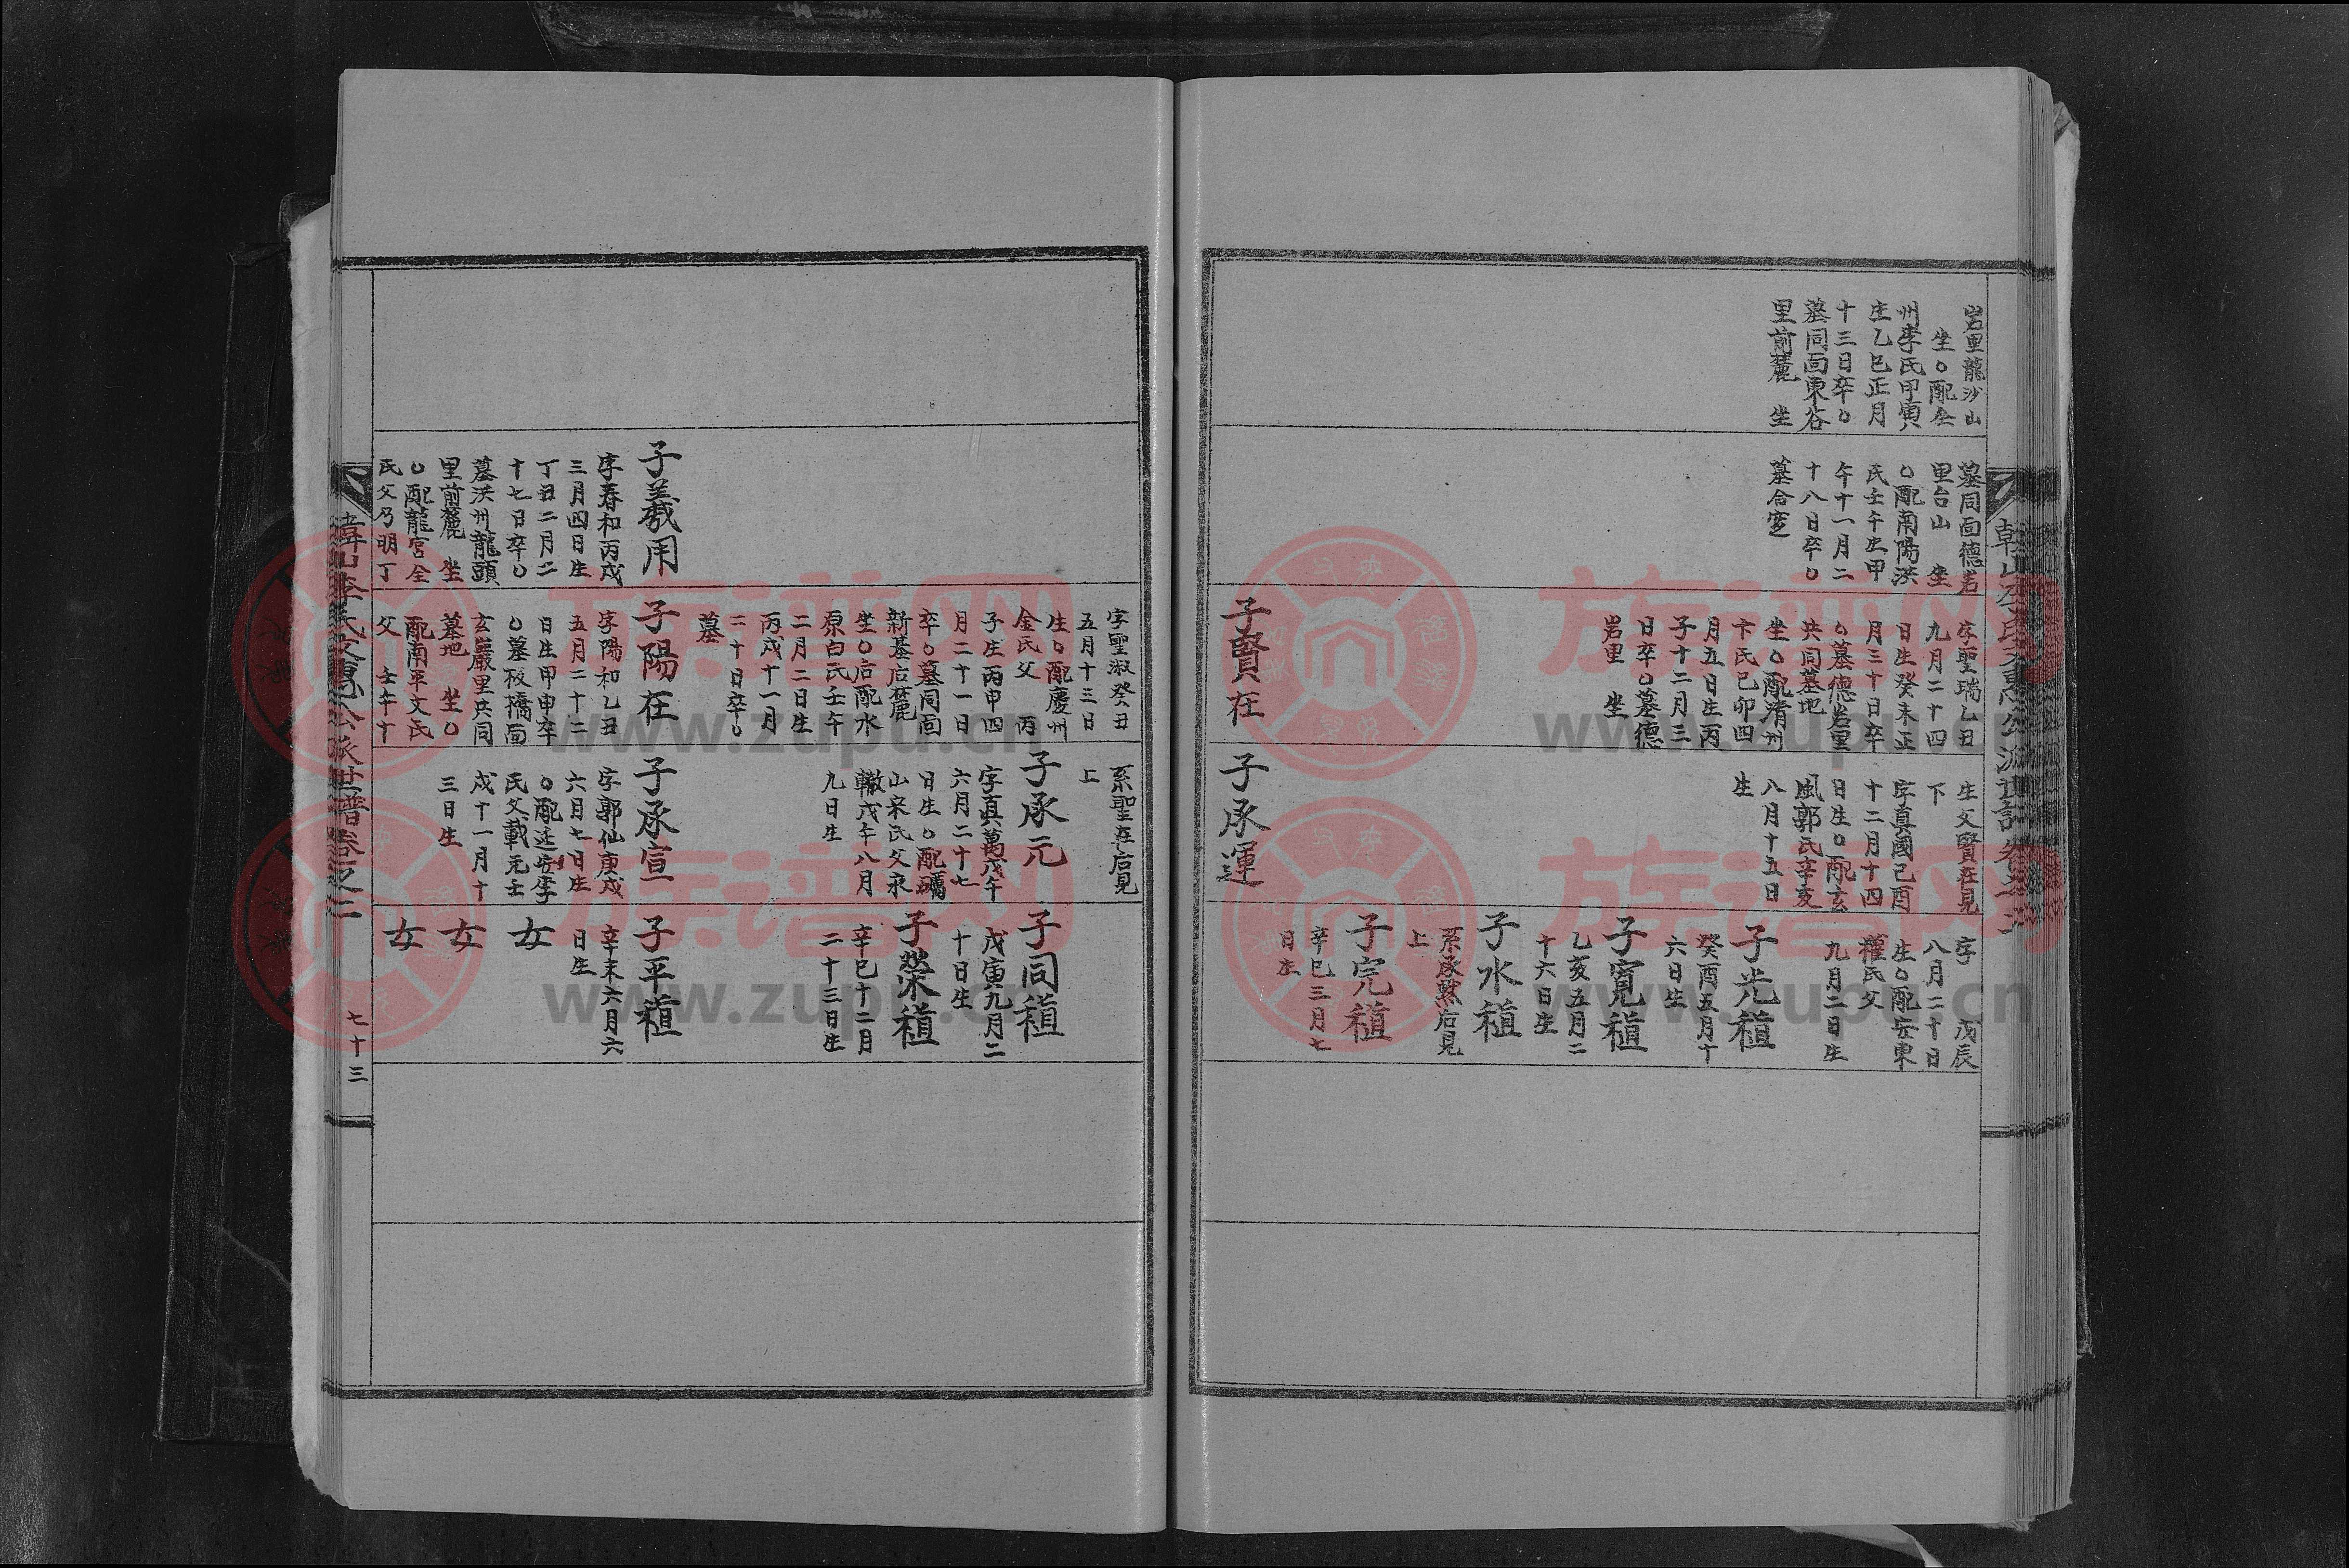 岩里龍沙山
坐○配全
州李氏甲寅
生乙巳正月
十三日卒○
墓同面東谷
里前麓 坐
墓同面德岩
里台山 坐
○配南陽洪
氏壬午生甲
午十一月二
十八日卒○
墓合窆
字聖瑞乙丑
九月二十四
日生癸未正
月三十日卒
○墓德岩里
共同墓地
坐○配清州
卞氏己卯四
月五日生丙
子十二月三
日卒○墓德
岩里 坐
子賢在
生父賢在見
下
字真國己酉
十二月十四
日生○配玄
風郭氏辛亥
八月十五日
生
子承運
字 戊辰
八月二十日
生○配安東
權氏父
九月二日生
子光稙
癸酉五月十
六日生
子寬稙
乙亥五月二
十六日生
子水稙
系承熙后見
上
子完稙
辛巳三月七
日生
字聖淑癸丑
五月十三日
生○配慶州
金氏父 丙
子生丙申四
月二十一日
卒○墓同面
新基后麓
坐○后配水
原白氏壬午
二月二日生
丙戌十一月
二十日卒○
墓
系聖在后見
上
子承元
字真萬戊午
六月二十七
日生○配礪
山宋氏父永
轍戊午八月
九日生
子同稙
戊寅九月二
十日生
子榮稙
辛巳十二月
二十三日生
子義用
字春和丙戌
三月四日生
丁丑二月二
十七日卒○
墓洪州龍頭
里前麓 坐
○配龍宮全
氏父乃明丁
子陽在
字陽和乙丑
五月二十二
日生甲申卒
○墓板橋面
玄巖里共同
墓地 坐○
配南平文氏
父 壬午十
子承宣
字郭仙庚戌
六月七日生
○配延安李
氏父載元壬
戌十一月十
三日生
子平稙
辛未六月六
日生
女
女
女
韓山李氏文惠公派世譜卷之二
七十三
族谱网
www.zupu.cn
族谱网
www.zupu.cn
族谱网
www.zupu.cn
族谱网
www.zupu.cn